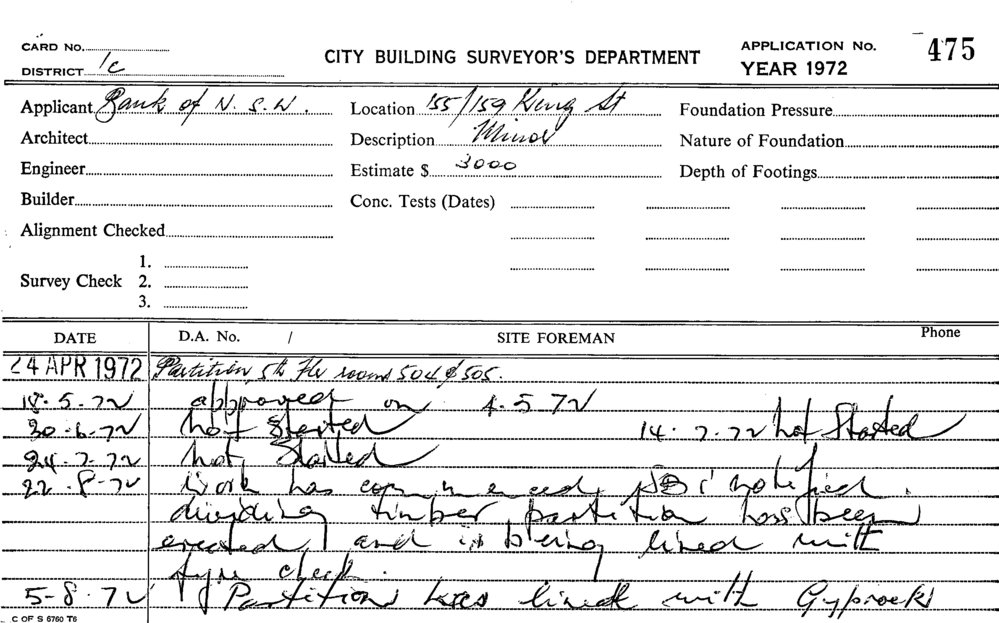 CARD No.
DISTRICT 1c
CITY BUILDING SURVEYOR'S DEPARTMENT
APPLICATION No. 475
YEAR 1972
Applicant Bank of N. S. W.
Location 155/159 King St
Foundation Pressure
Architect
Description Minor
Nature of Foundation
Engineer
Estimate $ 3000
Depth of Footings
Builder
Conc. Tests (Dates)
Alignment Checked
Survey Check
1.
2.
3.
DATE D.A. No. / SITE FOREMAN Phone
24 APR 1972 Partition, 5th Flr rooms 504 & 505.
18.5.72 approved on 4.5.72
30.6.72 not Started 14.7.72 not Started
24.7.72 not Started
22.8.72 Work has commenced, notified.
dividing timber partition has been
erected, and is being lined with
fyre check.
5-8.72 Partition was lined with Gyprock
C OF S 6760 T6